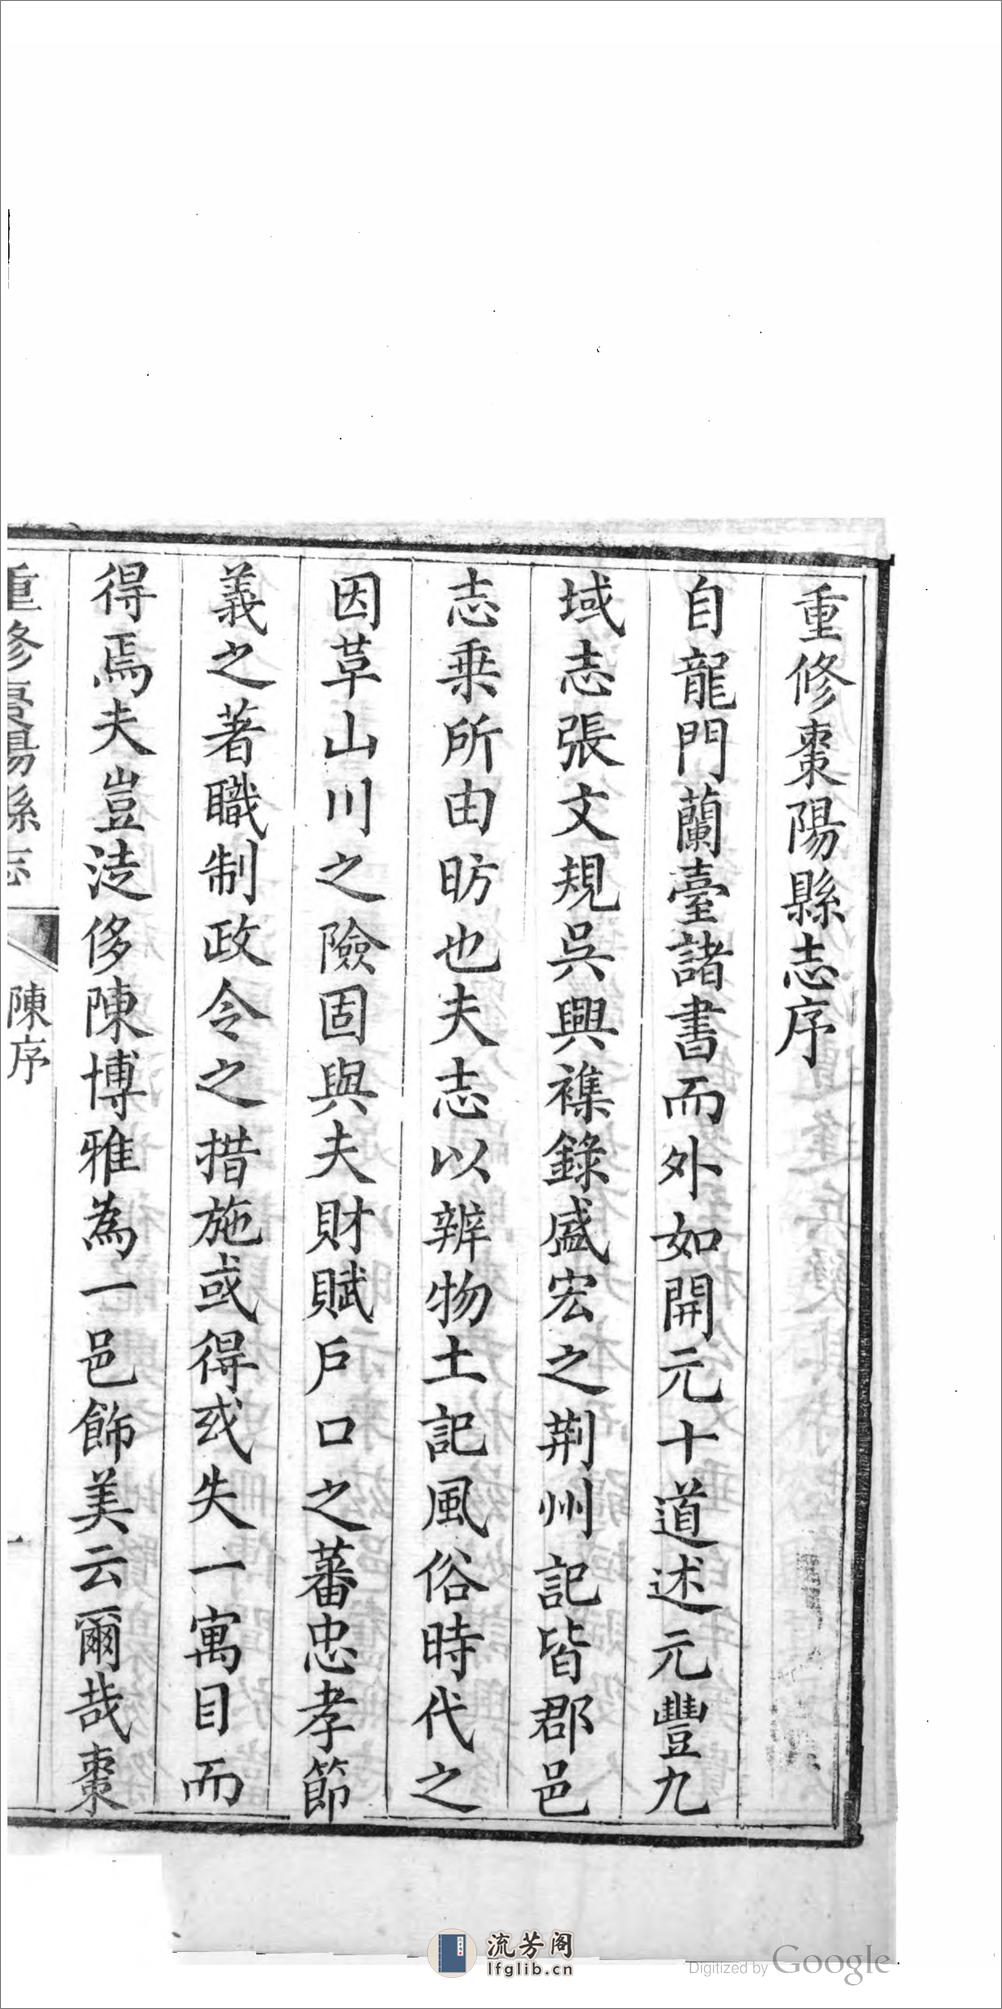 重修棗陽縣志序
自龍門蘭臺諸書而外如開元十道述元豐九
域志張文規吳興襍錄盛宏之荆州記皆郡邑
志乗所由昉也夫志以辨物土記風俗時代之
因革山川之險固與夫財賦戶口之蕃忠孝節
義之著職制政令之措施或得或失一寓目而
得焉夫豈侈陳博雅為一邑飾美云爾哉棗
重修棗陽縣志
陳序
一
流芳阁
lfglib.cn
Digitized by Google